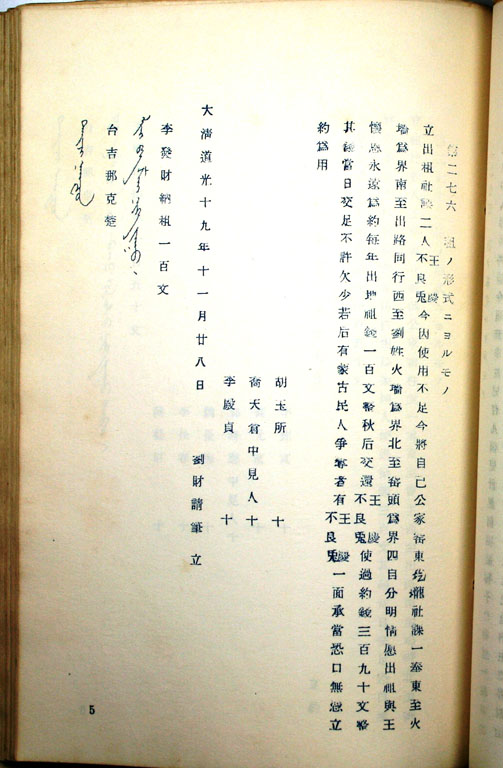 第二七六 租ノ形式ニヨルモノ
立出租社課二人王慶不良兎今因使用不足今將自己公家窰東圪壠社課一奎東至火
墻爲界南至出路同行西至劉姓火墻爲界北至窰頭爲界四自分明情愿出租與王
懷恩永遠爲約每年出地租錢一百文整秋后交還王慶不良兎使過約錢三百九十文整
其錢當日交足不許欠少若后有蒙古民人争奪者有王慶不良兎一面承當恐口無憑立
約爲用
胡玉所 十
喬天富中見人十
李殿貞 十
大清道光十九年十一月廿八日 劉財請筆 立
李發財納租一百文
台吉那克楚
5